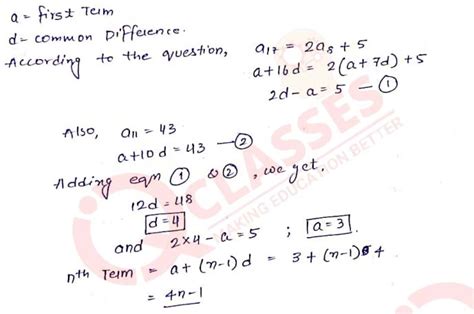 a = first Term
d = common Difference.
According to the question, a₁₇ = 2a₈ + 5
a+16d = 2(a+7d)+5
2d - a = 5 — ①
Also, a₁₁ = 43
a+10d = 43 — ②
Adding eqn ① & ②, we get.
12d = 48
d = 4
and 2×4 - a = 5 ; a = 3.
nth Term = a + (n-1)d = 3 + (n-1) 4
= 4n-1
CLASSES
MAKING EDUCATION BETTER